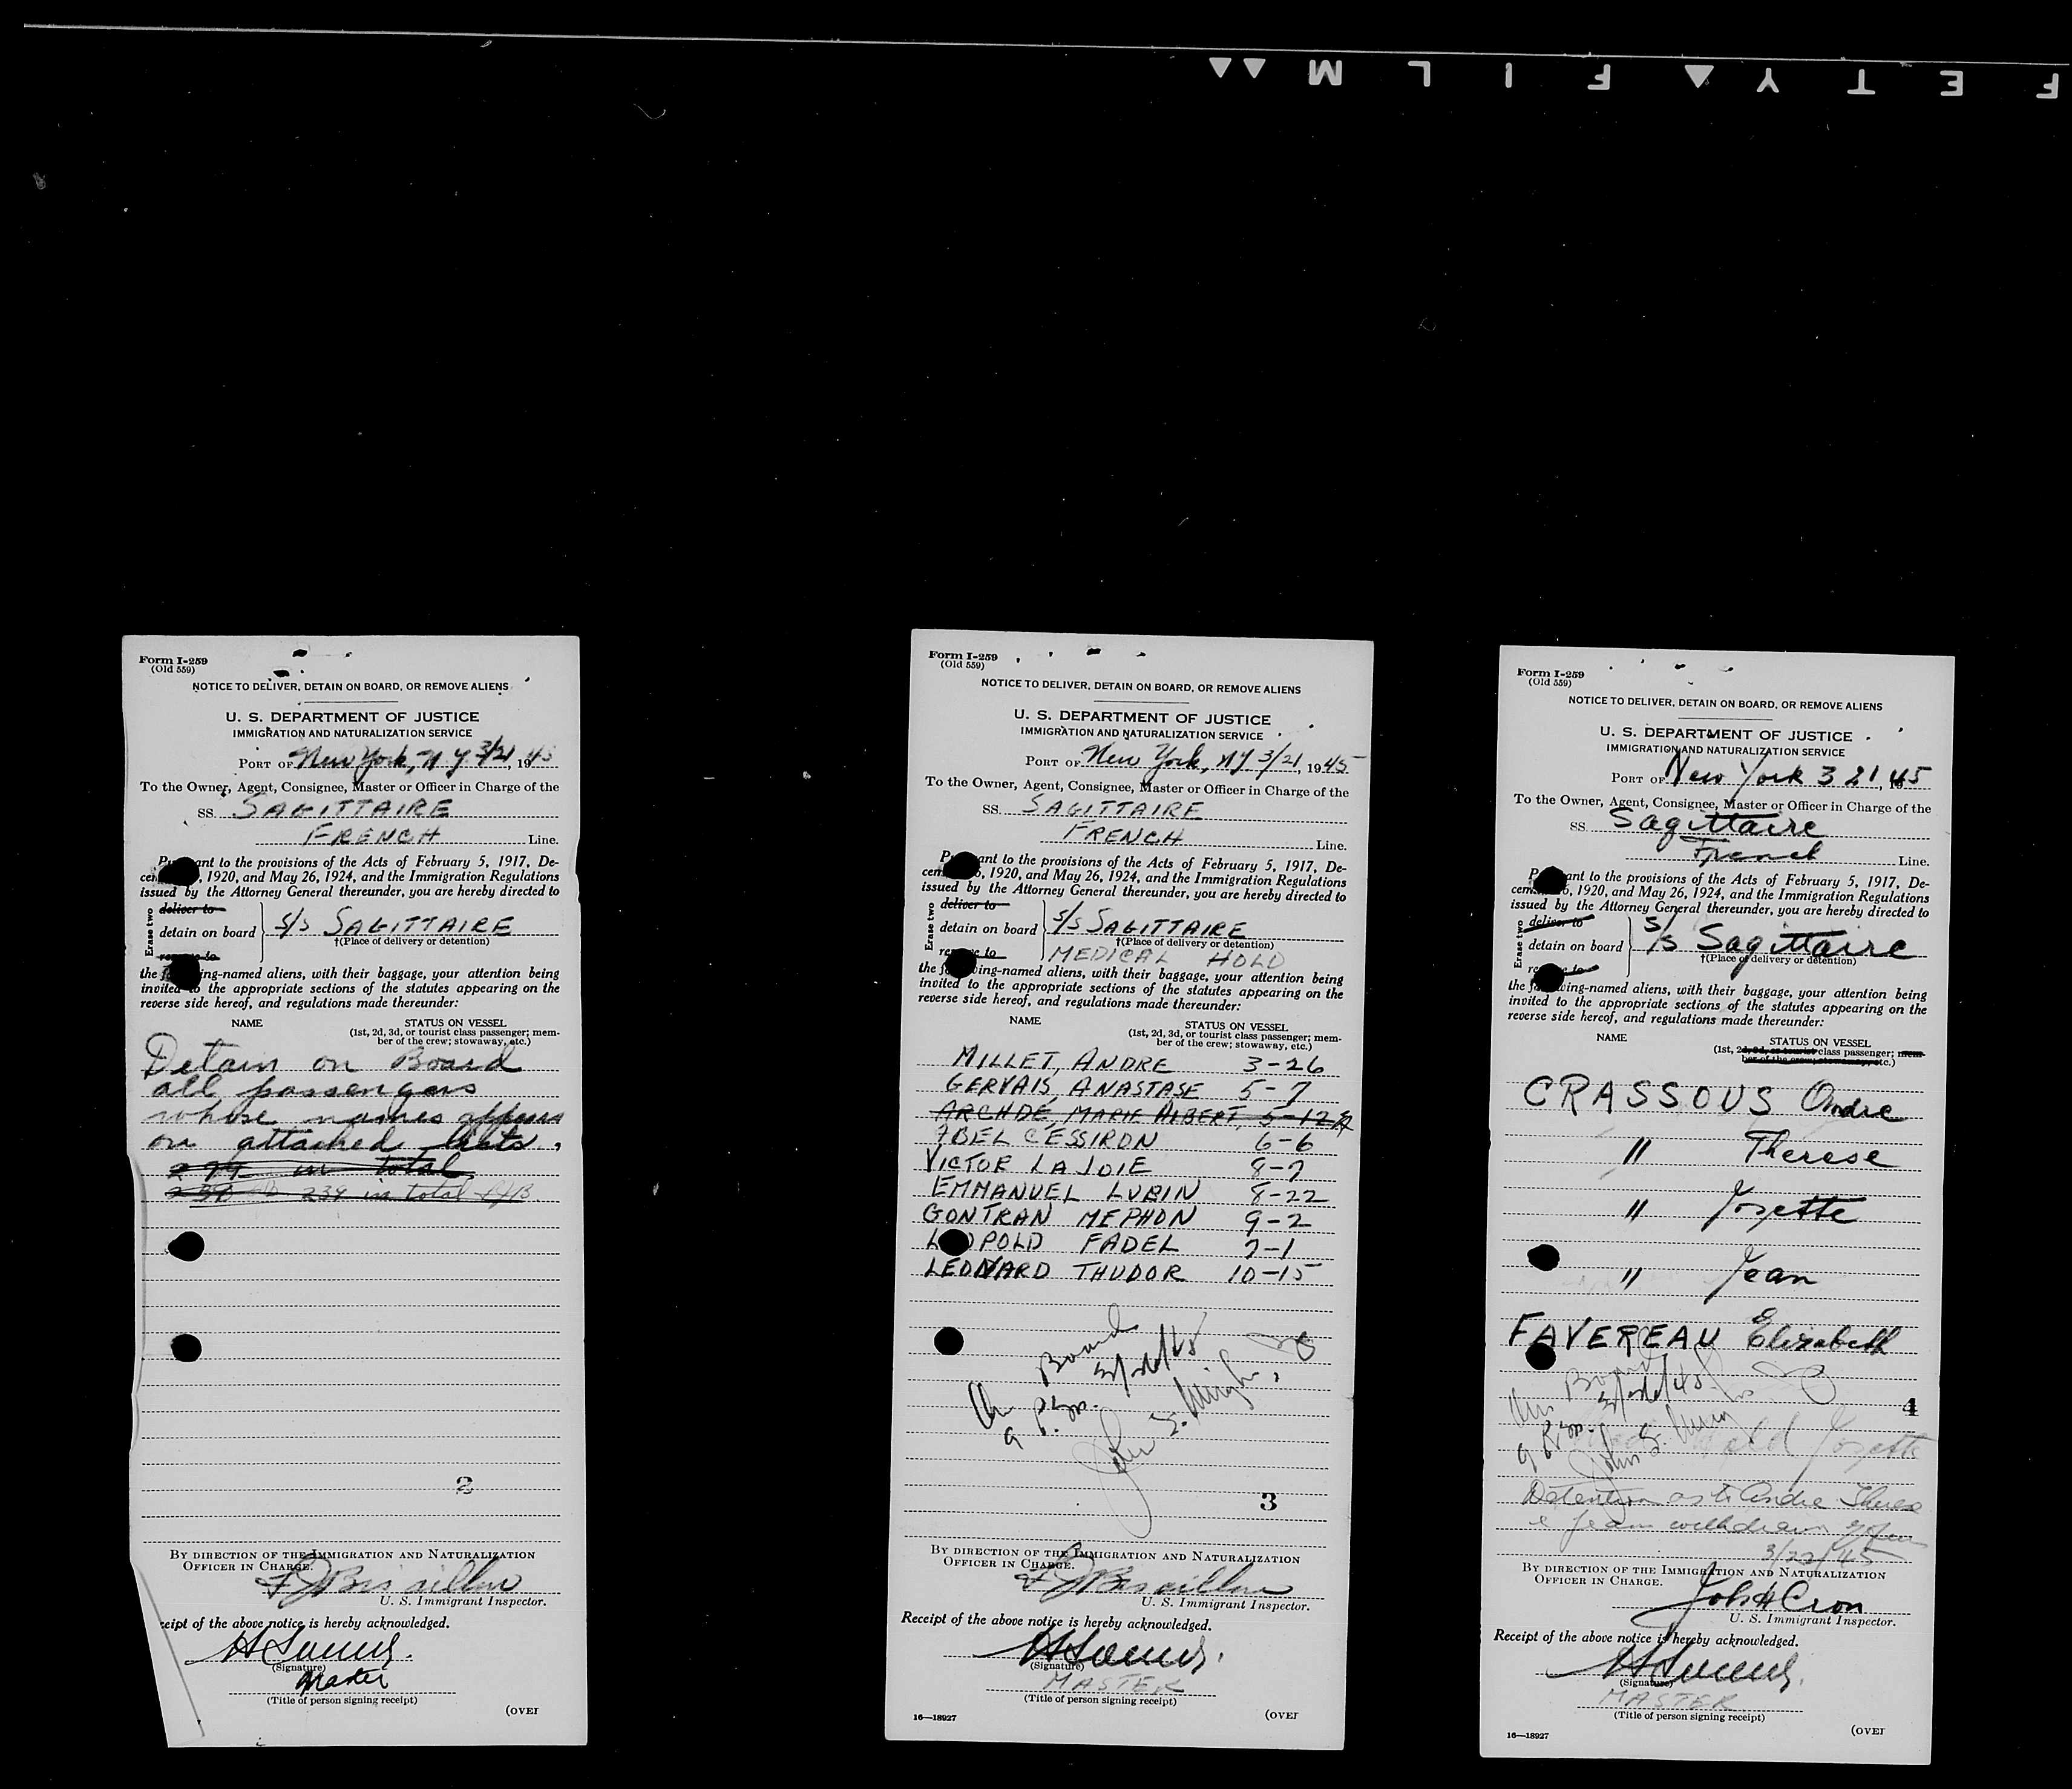 F E T Y ▲ F I L M ▲▲
Form I-259
(Old 559)
NOTICE TO DELIVER, DETAIN ON BOARD, OR REMOVE ALIENS
U. S. DEPARTMENT OF JUSTICE
IMMIGRATION AND NATURALIZATION SERVICE
PORT OF New York, N.Y. 3/21, 1945
To the Owner, Agent, Consignee, Master or Officer in Charge of the
SS. SAGITTAIRE
FRENCH Line.
ant to the provisions of the Acts of February 5, 1917, De-
, 1920, and May 26, 1924, and the Immigration Regulations
issued by the Attorney General thereunder, you are hereby directed to
Erase two
deliver to
detain on board } S/S SAGITTAIRE
†(Place of delivery or detention)
the ing-named aliens, with their baggage, your attention being
invited to the appropriate sections of the statutes appearing on the
reverse side hereof, and regulations made thereunder:
NAME STATUS ON VESSEL
(1st, 2d, 3d, or tourist class passenger; mem-
ber of the crew; stowaway, etc.)
Detain on Board
all passengers
whose names appear
on attached lists.
in total
239 in total
2
BY DIRECTION OF THE IMMIGRATION AND NATURALIZATION
OFFICER IN CHARGE.
U. S. Immigrant Inspector.
eceipt of the above notice is hereby acknowledged.
(Signature)
Master
(Title of person signing receipt)
(OVER
Form I-259
(Old 559)
NOTICE TO DELIVER, DETAIN ON BOARD, OR REMOVE ALIENS
U. S. DEPARTMENT OF JUSTICE
IMMIGRATION AND NATURALIZATION SERVICE
PORT OF New York, NY 3/21, 1945
To the Owner, Agent, Consignee, Master or Officer in Charge of the
SS. SAGITTAIRE
FRENCH Line.
ant to the provisions of the Acts of February 5, 1917, De-
, 1920, and May 26, 1924, and the Immigration Regulations
issued by the Attorney General thereunder, you are hereby directed to
Erase two
deliver to
detain on board } S/S SAGITTAIRE
†(Place of delivery or detention)
MEDICAL HOLD
the ing-named aliens, with their baggage, your attention being
invited to the appropriate sections of the statutes appearing on the
reverse side hereof, and regulations made thereunder:
NAME STATUS ON VESSEL
(1st, 2d, 3d, or tourist class passenger; mem-
ber of the crew; stowaway, etc.)
MILLET, ANDRE 3-26
GERVAIS, ANASTASE 5-7
ARCHDE, MARIE ALBERT, 5-12
CESSIRON 6-6
VICTOR LAJOIE 8-7
EMMANUEL LUBIN 8-22
GONTRAN MEPHON 9-2
L POLD FADEL 7-1
LEONARD THUDOR 10-15
On Board
9 P.m.
3
BY DIRECTION OF THE IMMIGRATION AND NATURALIZATION
OFFICER IN CHARGE.
U. S. Immigrant Inspector.
Receipt of the above notice is hereby acknowledged.
(Signature)
MASTER
(Title of person signing receipt)
16—18927 (OVER
Form I-259
(Old 559)
NOTICE TO DELIVER, DETAIN ON BOARD, OR REMOVE ALIENS
U. S. DEPARTMENT OF JUSTICE
IMMIGRATION AND NATURALIZATION SERVICE
PORT OF New York 3 21, 1945
To the Owner, Agent, Consignee, Master or Officer in Charge of the
SS. Sagittaire
French Line.
ant to the provisions of the Acts of February 5, 1917, De-
, 1920, and May 26, 1924, and the Immigration Regulations
issued by the Attorney General thereunder, you are hereby directed to
Erase two
deliver to
detain on board } S/S Sagittaire
†(Place of delivery or detention)
the ing-named aliens, with their baggage, your attention being
invited to the appropriate sections of the statutes appearing on the
reverse side hereof, and regulations made thereunder:
NAME STATUS ON VESSEL
(1st, 2d, 3d, or tourist class passenger; mem-
ber of the crew; stowaway, etc.)
CRASSOUS Andre
" Therese
" Josette
" Jean
FAVEREAU Elizabeth
On Board
9 P.m.
4
Josette
Detention as to Andre Therese
& Jean withdrawn
3/22/45
BY DIRECTION OF THE IMMIGRATION AND NATURALIZATION
OFFICER IN CHARGE.
John H Cron
U. S. Immigrant Inspector.
Receipt of the above notice is hereby acknowledged.
(Signature)
MASTER
(Title of person signing receipt)
16—18927 (OVER